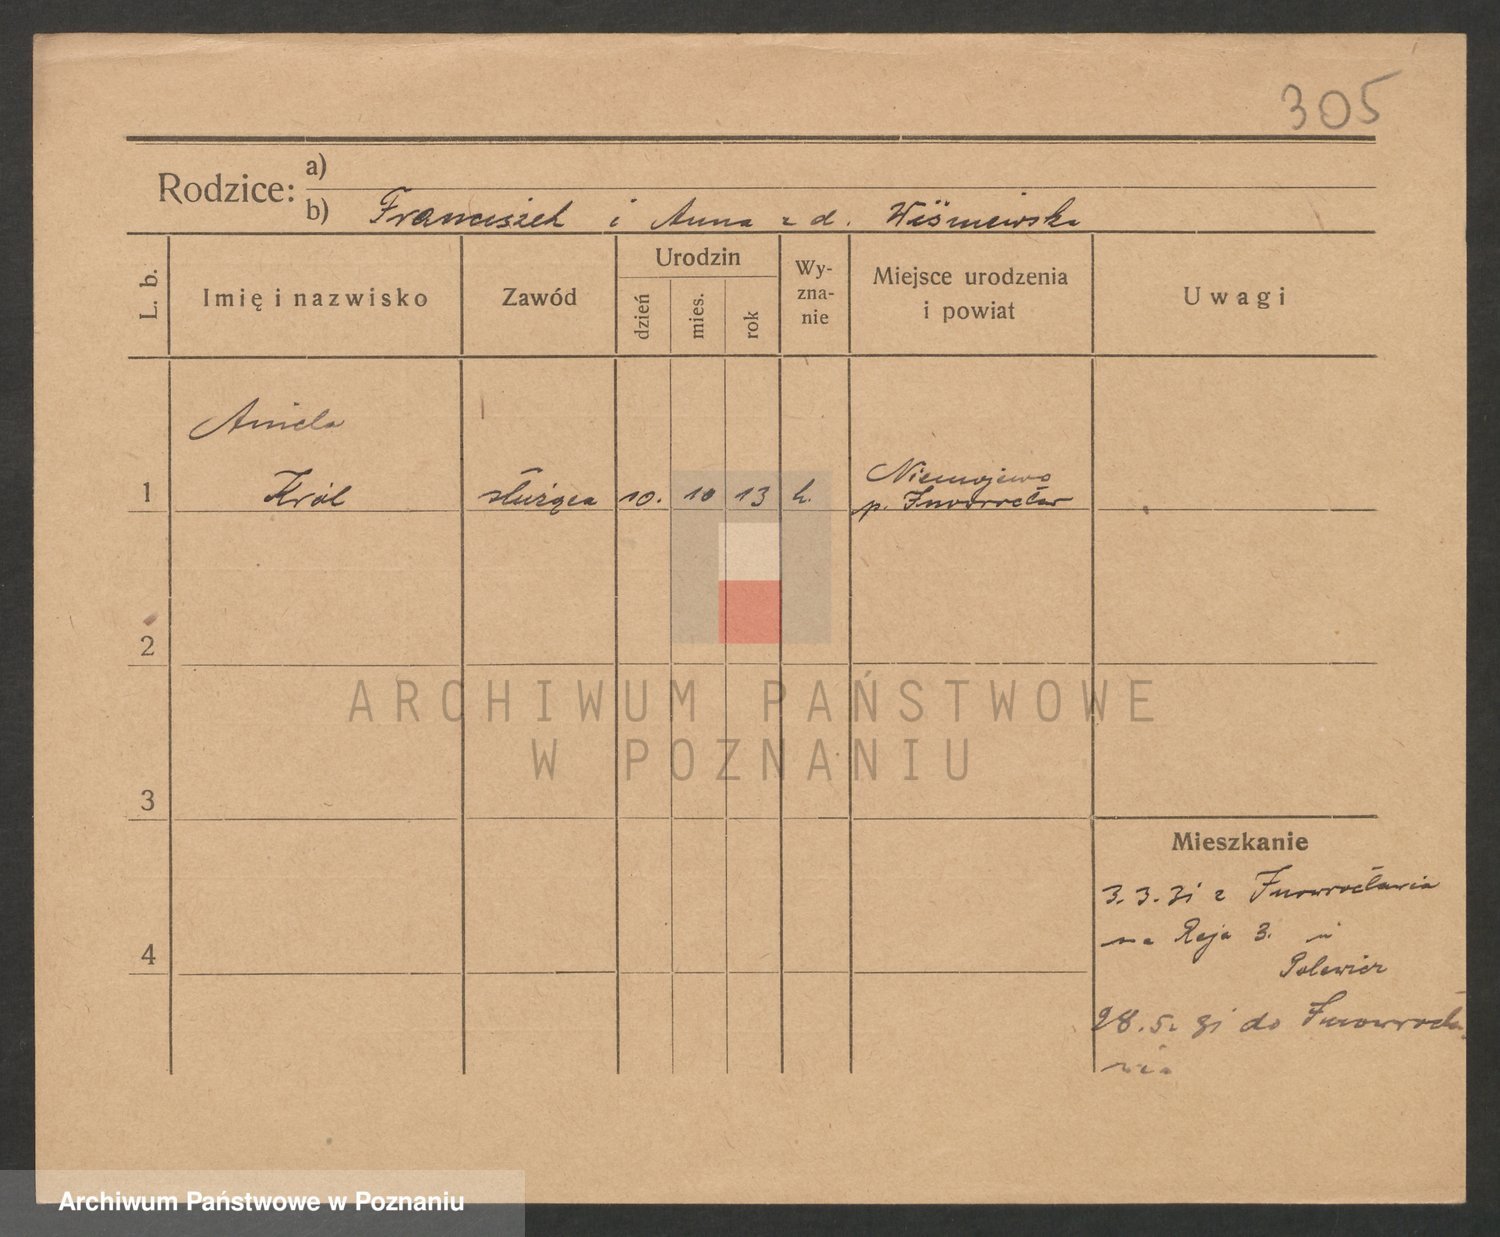 305
Rodzice: a)
b) Franciszek i Anna z d. Wiśniewska
L. b.
Imię i nazwisko
Zawód
Urodzin
dzień
mies.
rok
Wy-
zna-
nie
Miejsce urodzenia
i powiat
Uwagi
Aniela
1 Król służąca 10. 10 13 k. Niemojewo
p. Inowrocław
2
ARCHIWUM PAŃSTWOWE
W POZNANIU
3
Mieszkanie
3.3.31 z Inowrocławia
na Reja 3. u
4
28.5. 31 do Inowrocła-
wia
Archiwum Państwowe w Poznaniu